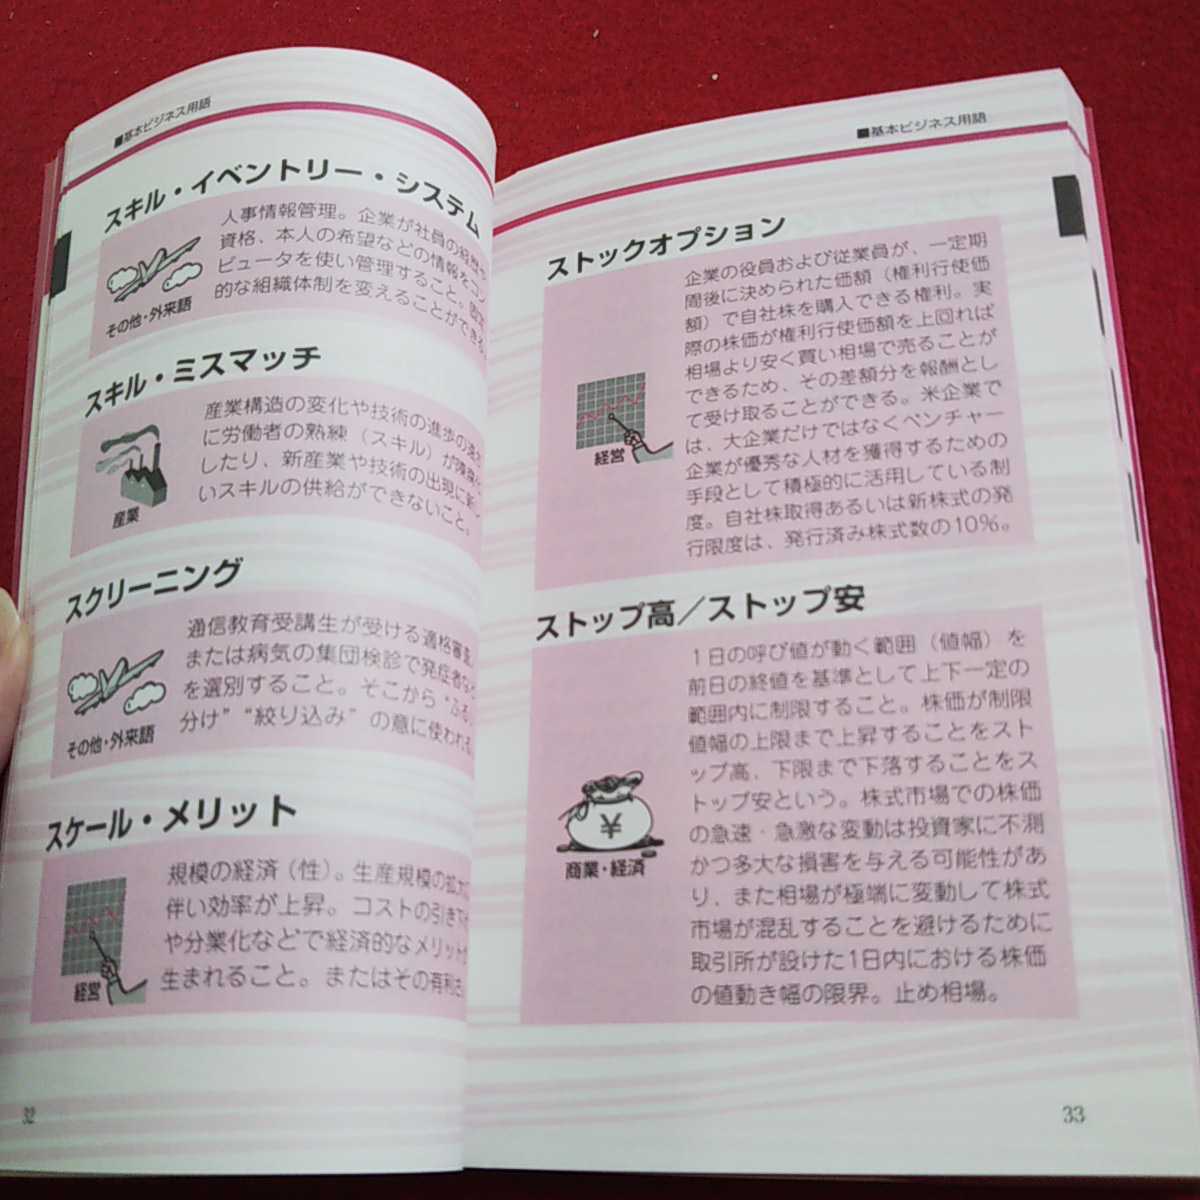 ■基本ビジネス用語
スキル・イベントリー・システム
人事情報管理。企業が社員の経歴や
資格、本人の希望などの情報をコン
ピュータを使い管理すること。固定
的な組織体制を変えることができる
その他・外来語
スキル・ミスマッチ
産業構造の変化や技術の進歩の速さ
に労働者の熟練（スキル）が陳腐化
したり、新産業や技術の出現に新し
いスキルの供給ができないこと。
産業
スクリーニング
通信教育受講生が受ける適格審査。
または病気の集団検診で発症者など
を選別すること。そこから“ふるい
分け”“絞り込み”の意に使われる
その他・外来語
スケール・メリット
規模の経済（性）。生産規模の拡大に
伴い効率が上昇。コストの引き下
や分業化などで経済的なメリットが
生まれること。またはその有利さ
経営
32
■基本ビジネス用語
ストックオプション
企業の役員および従業員が、一定期
間後に決められた価額（権利行使価
額）で自社株を購入できる権利。実
際の株価が権利行使価額を上回れば
相場より安く買い相場で売ることが
できるため、その差額分を報酬とし
て受け取ることができる。米企業で
は、大企業だけではなくベンチャー
企業が優秀な人材を獲得するための
手段として積極的に活用している制
度。自社株取得あるいは新株式の発
行限度は、発行済み株式数の10％。
経営
ストップ高／ストップ安
1日の呼び値が動く範囲（値幅）を
前日の終値を基準として上下一定の
範囲内に制限すること。株価が制限
値幅の上限まで上昇することをスト
ップ高、下限まで下落することをス
トップ安という。株式市場での株価
の急速・急激な変動は投資家に不測
かつ多大な損害を与える可能性があ
り、また相場が極端に変動して株式
市場が混乱することを避けるために
取引所が設けた1日内における株価
の値動き幅の限界。止め相場。
¥
商業・経済
33